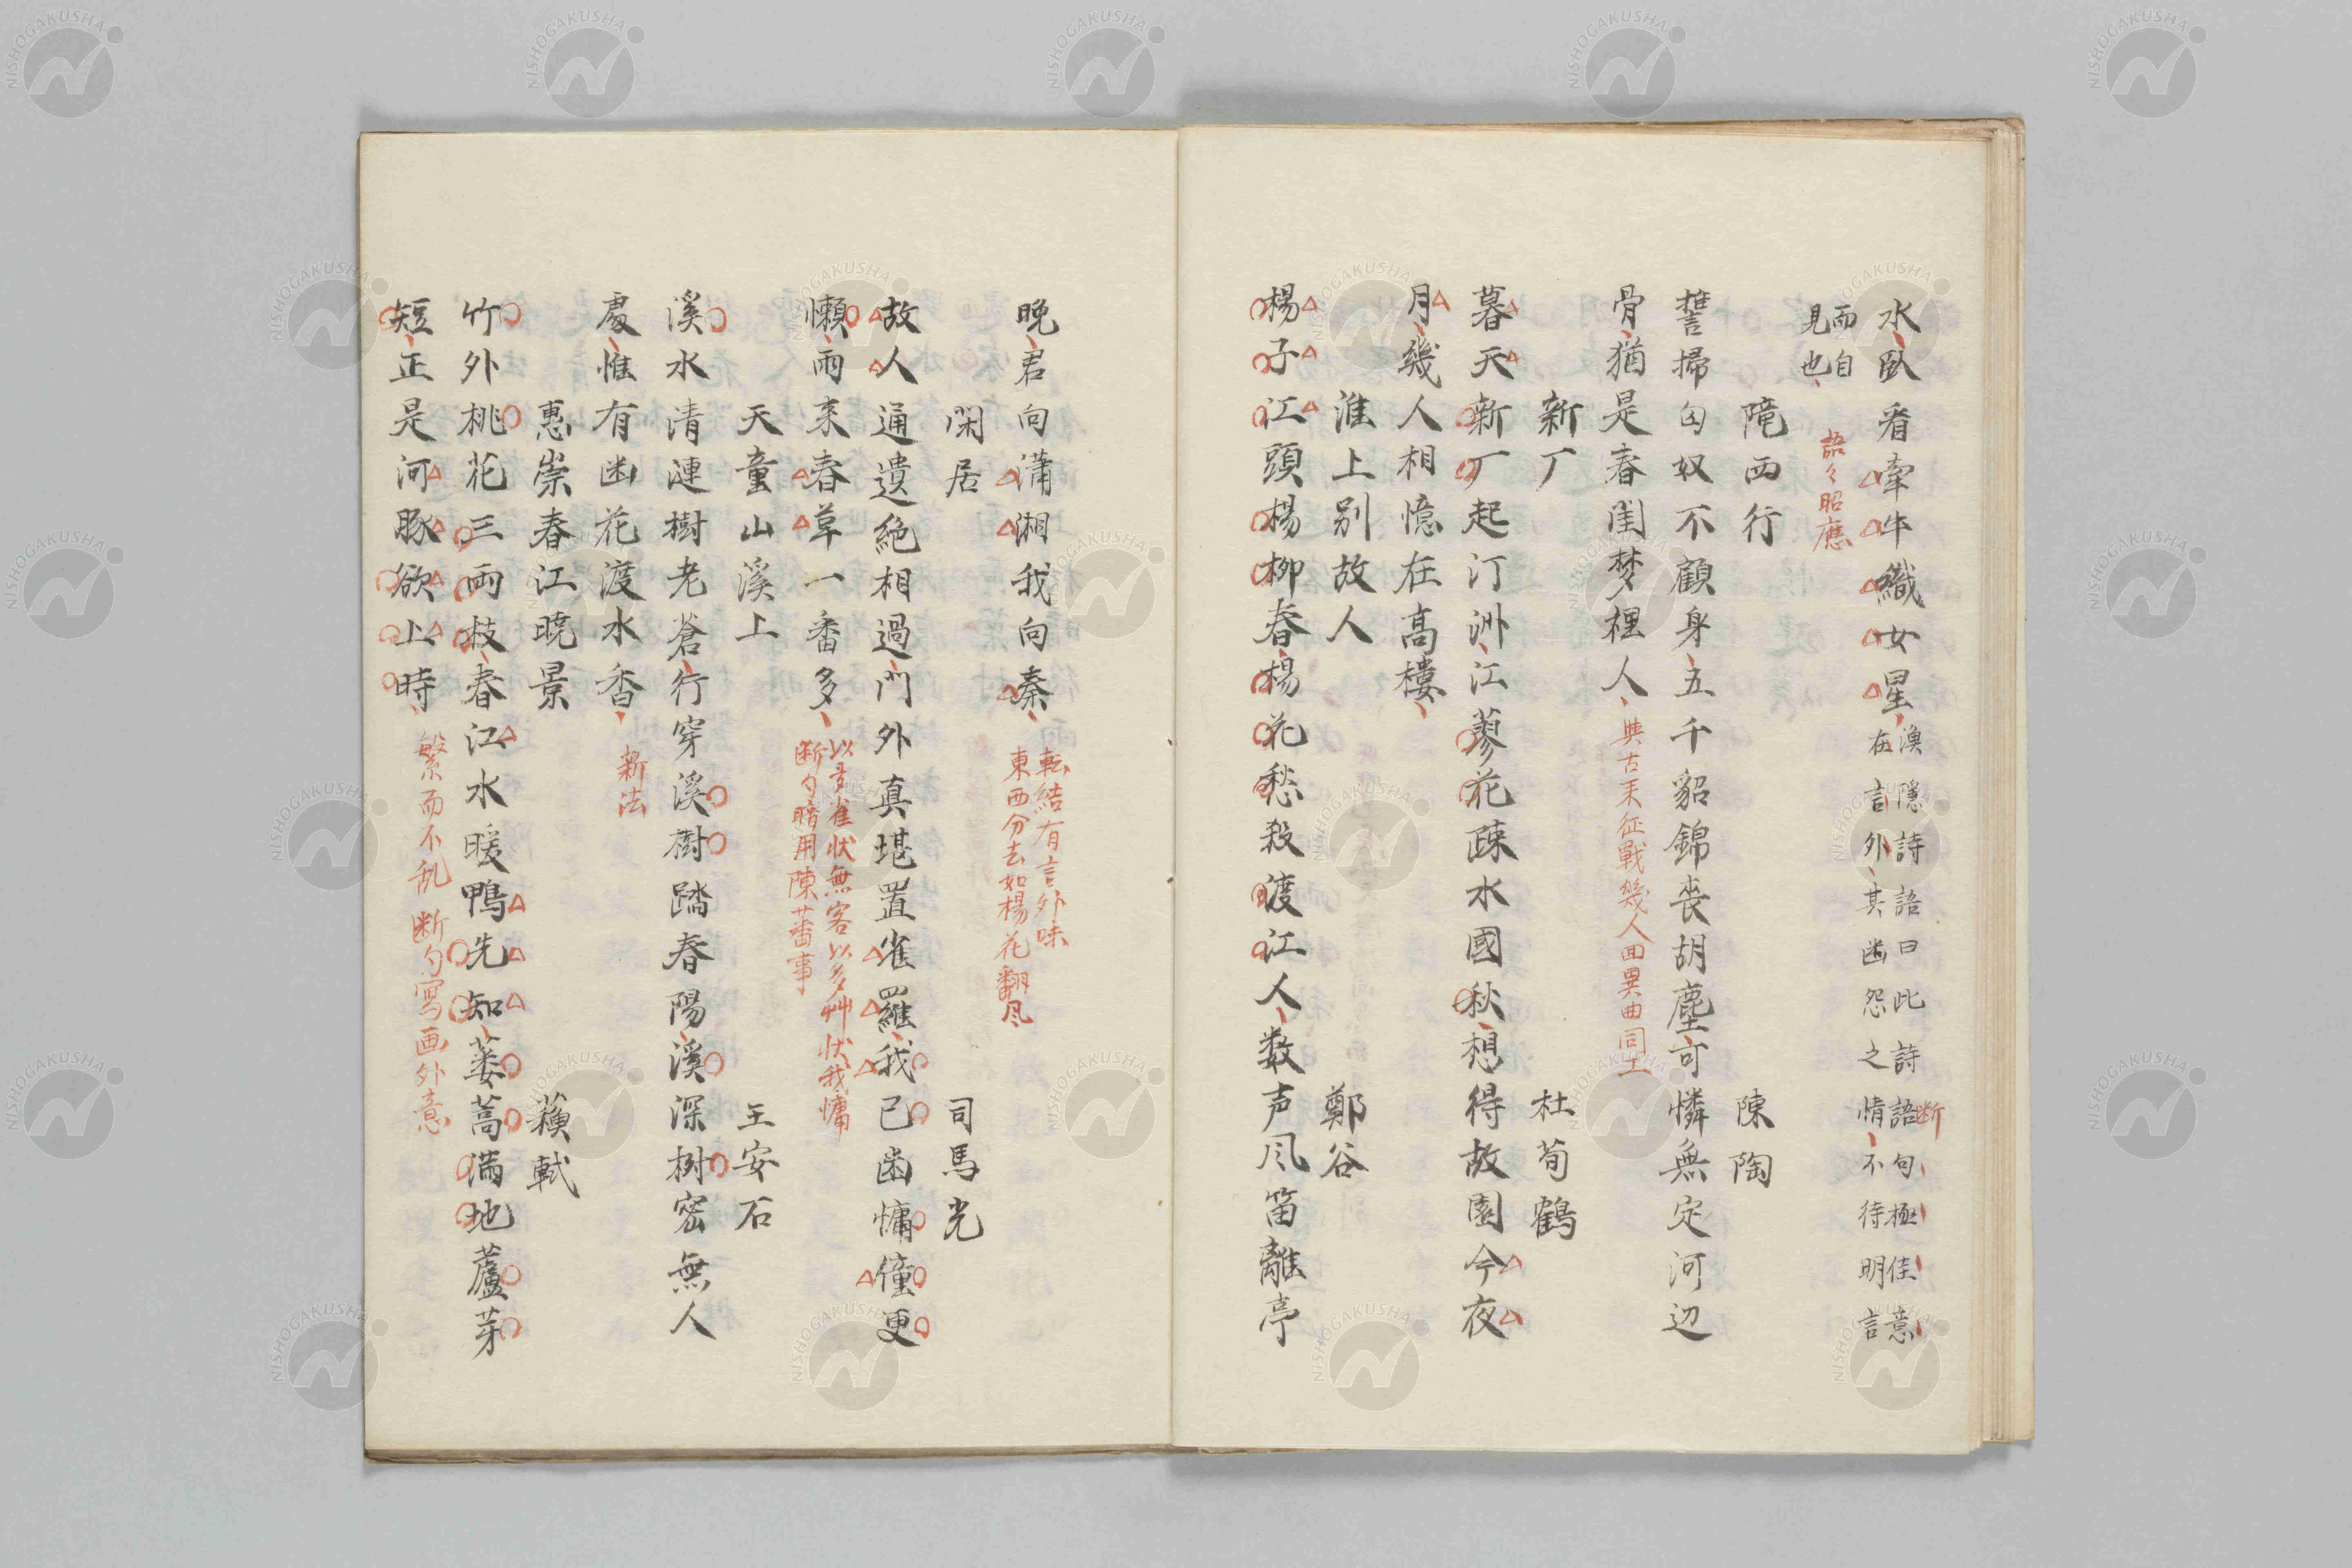 水臥看牽牛織女星
漁隠詩語曰此詩語句極佳意
断
在言外其幽怨之情不待明言
而自
見也
語々昭應
隴西行
陳陶
誓掃匈奴不顧身五千貂錦喪胡塵可憐無定河辺
骨猶是春閨梦裡人
與古来征戰幾人回異曲同工
新厂
杜荀鶴
暮天新厂起汀洲江蓼花疎水國秋想得故園今夜
月幾人相憶在高樓
淮上別故人
鄭谷
楊子江頭楊柳春楊花愁殺渡江人数声风笛離亭
晚君向瀟湘我向秦
転結有言外味
東西分去如楊花翻风
閑居
司馬光
故人通遺絶相過門外真堪置雀羅我已幽慵僮更
懶雨来春草一番多
以多雀状無客以多艸状我慵
断句暗用陳蕃事
天童山溪上
王安石
溪水清漣樹老蒼行穿溪樹踏春陽溪深樹密無人
處惟有幽花渡水香
新法
惠崇春江暁景
蘓軾
竹外桃花三両枝春江水暖鴨先知蔞蒿満地蘆芽
短正是河豚欲上時
繁而不乱 断句写画外意
NISHOGAKUSHA